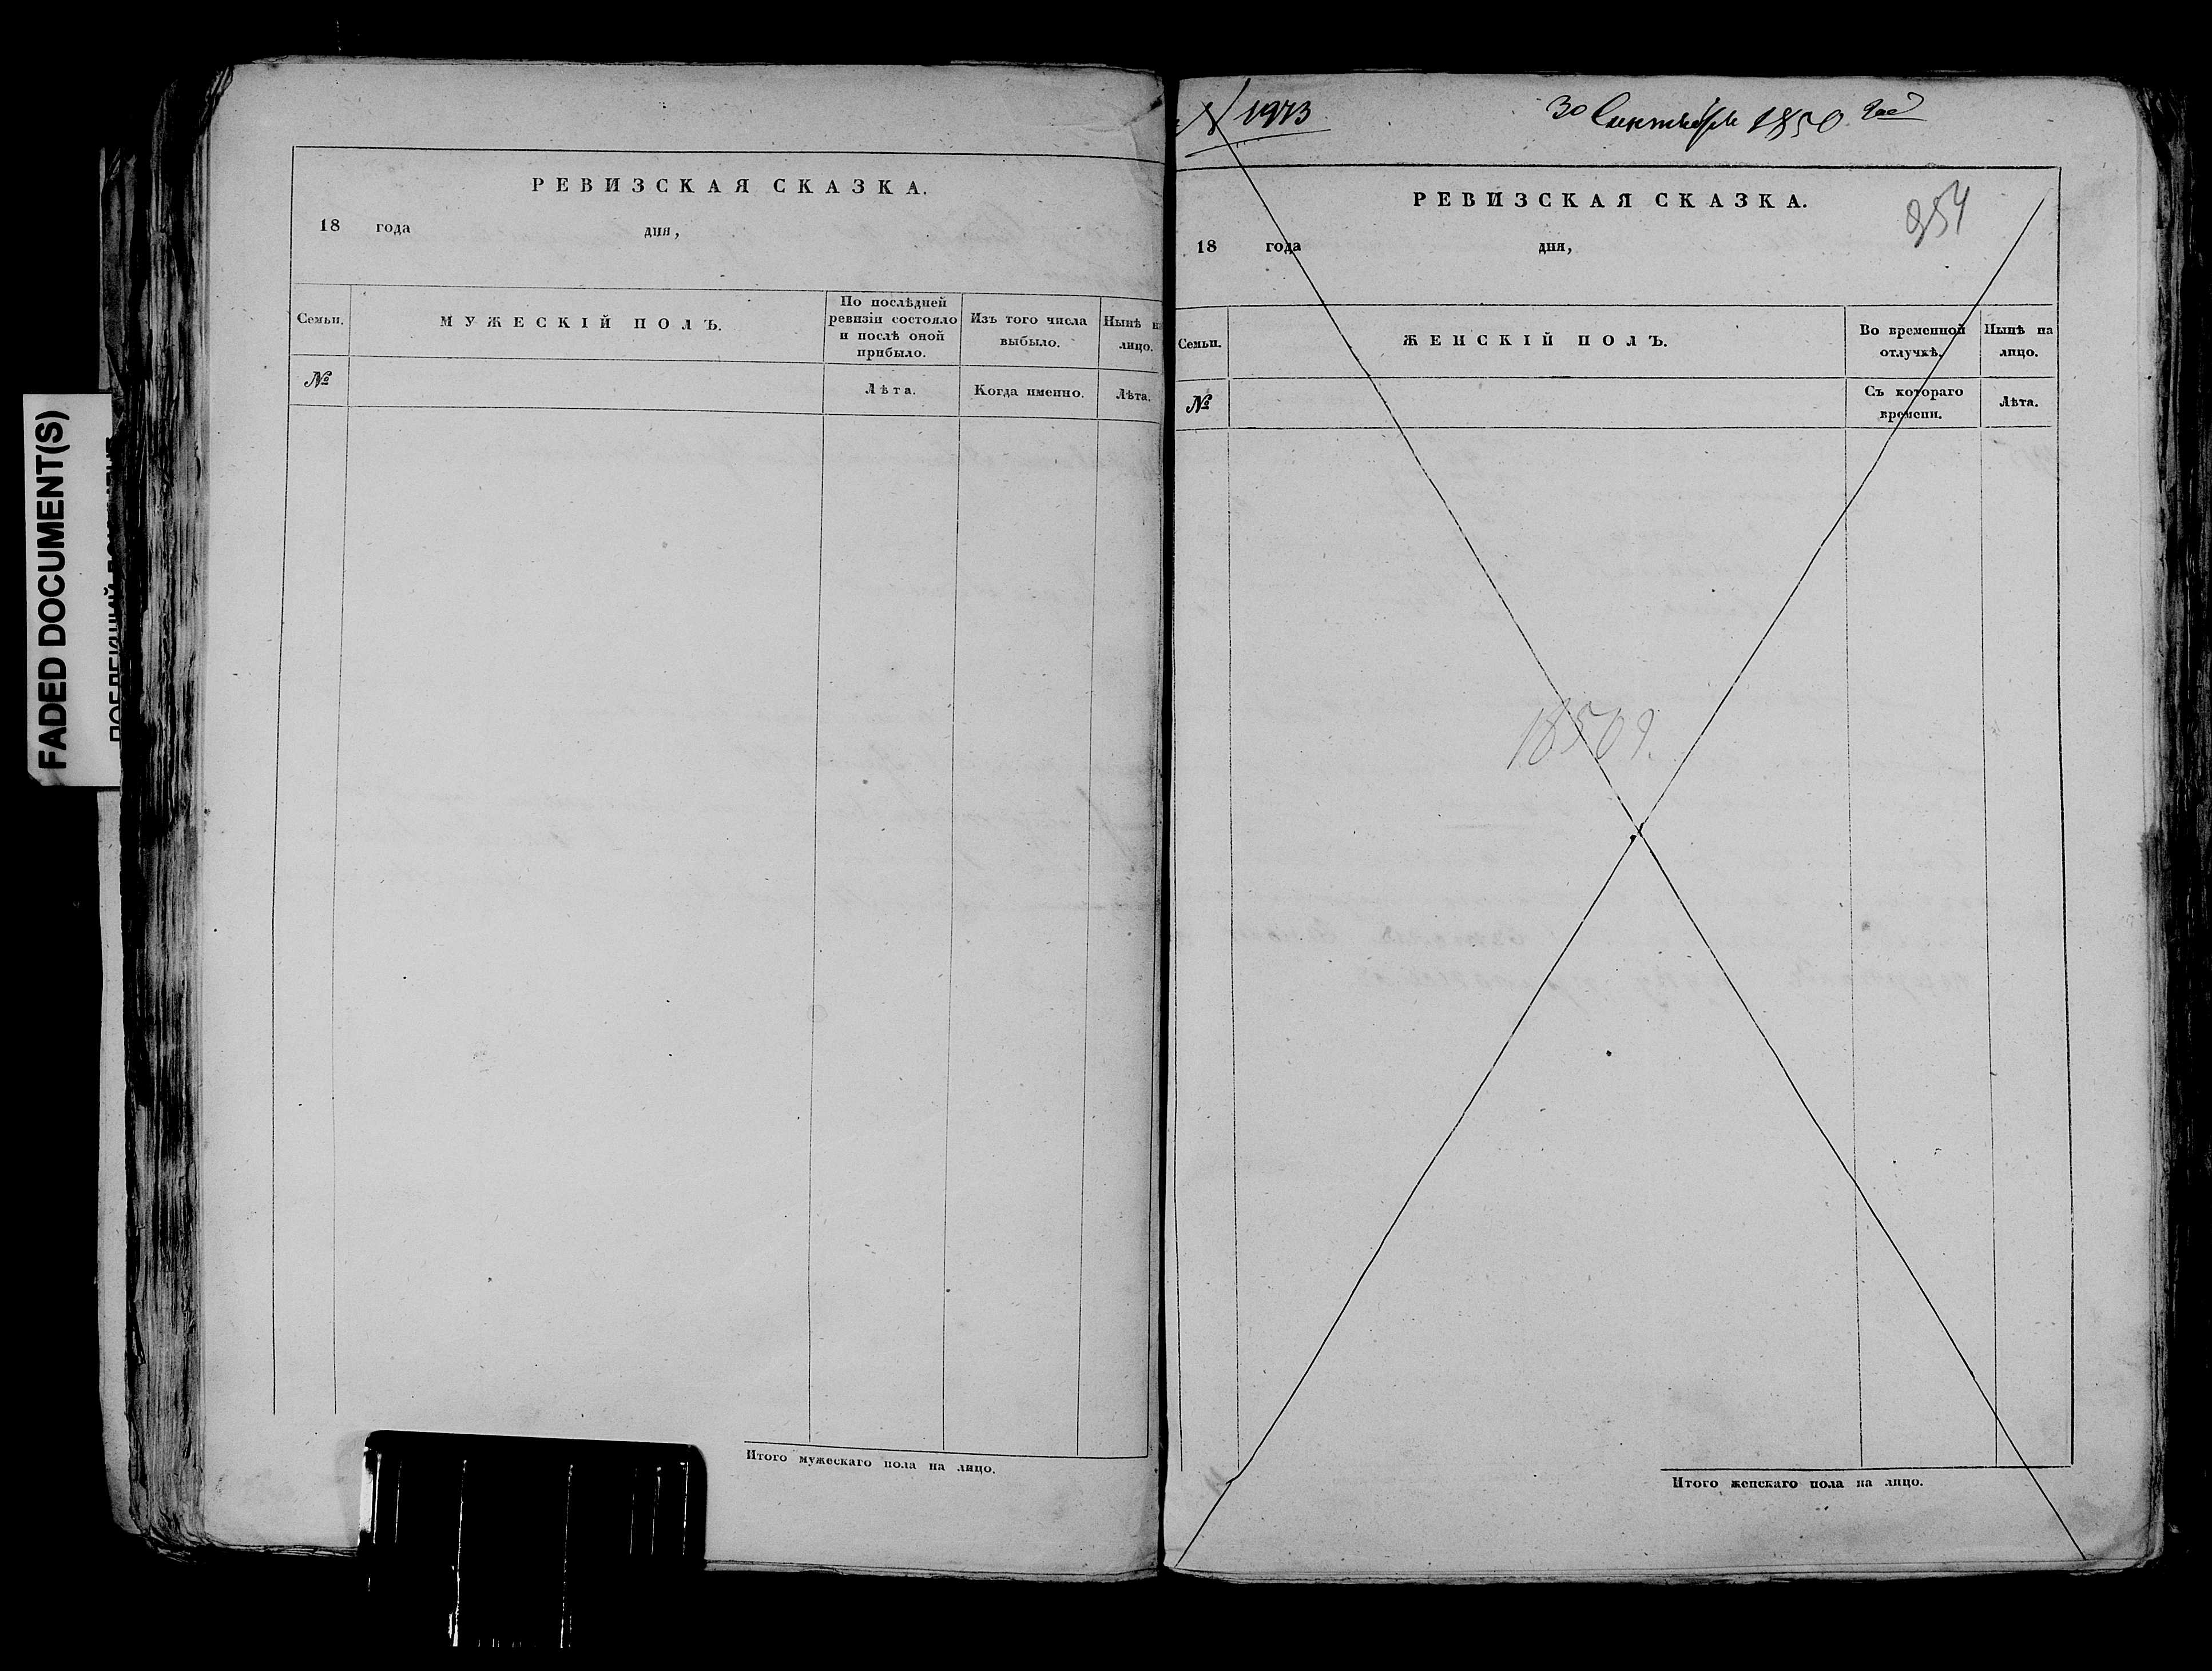 FADED DOCUMENT(S)
РЕВИЗСКАЯ СКАЗКА.
18 года дня,
Семьи.
МУЖЕСКІЙ ПОЛЪ.
По послѣдней
ревизіи состояло
и послѣ оной
прибыло.
Изъ того числа
выбыло.
Нынѣ на
лицо.
№
Лѣта.
Когда именно.
Лѣта.
Итого мужескаго пола на лицо.
№ 1973
30 Сентября 1850 года
РЕВИЗСКАЯ СКАЗКА.
354
18 года дня,
Семьи.
ЖЕНСКІЙ ПОЛЪ.
Во временной
отлучкѣ.
Нынѣ на
лицо.
№
Съ котораго
времени.
Лѣта.
1850 г.
Итого женскаго пола на лицо.